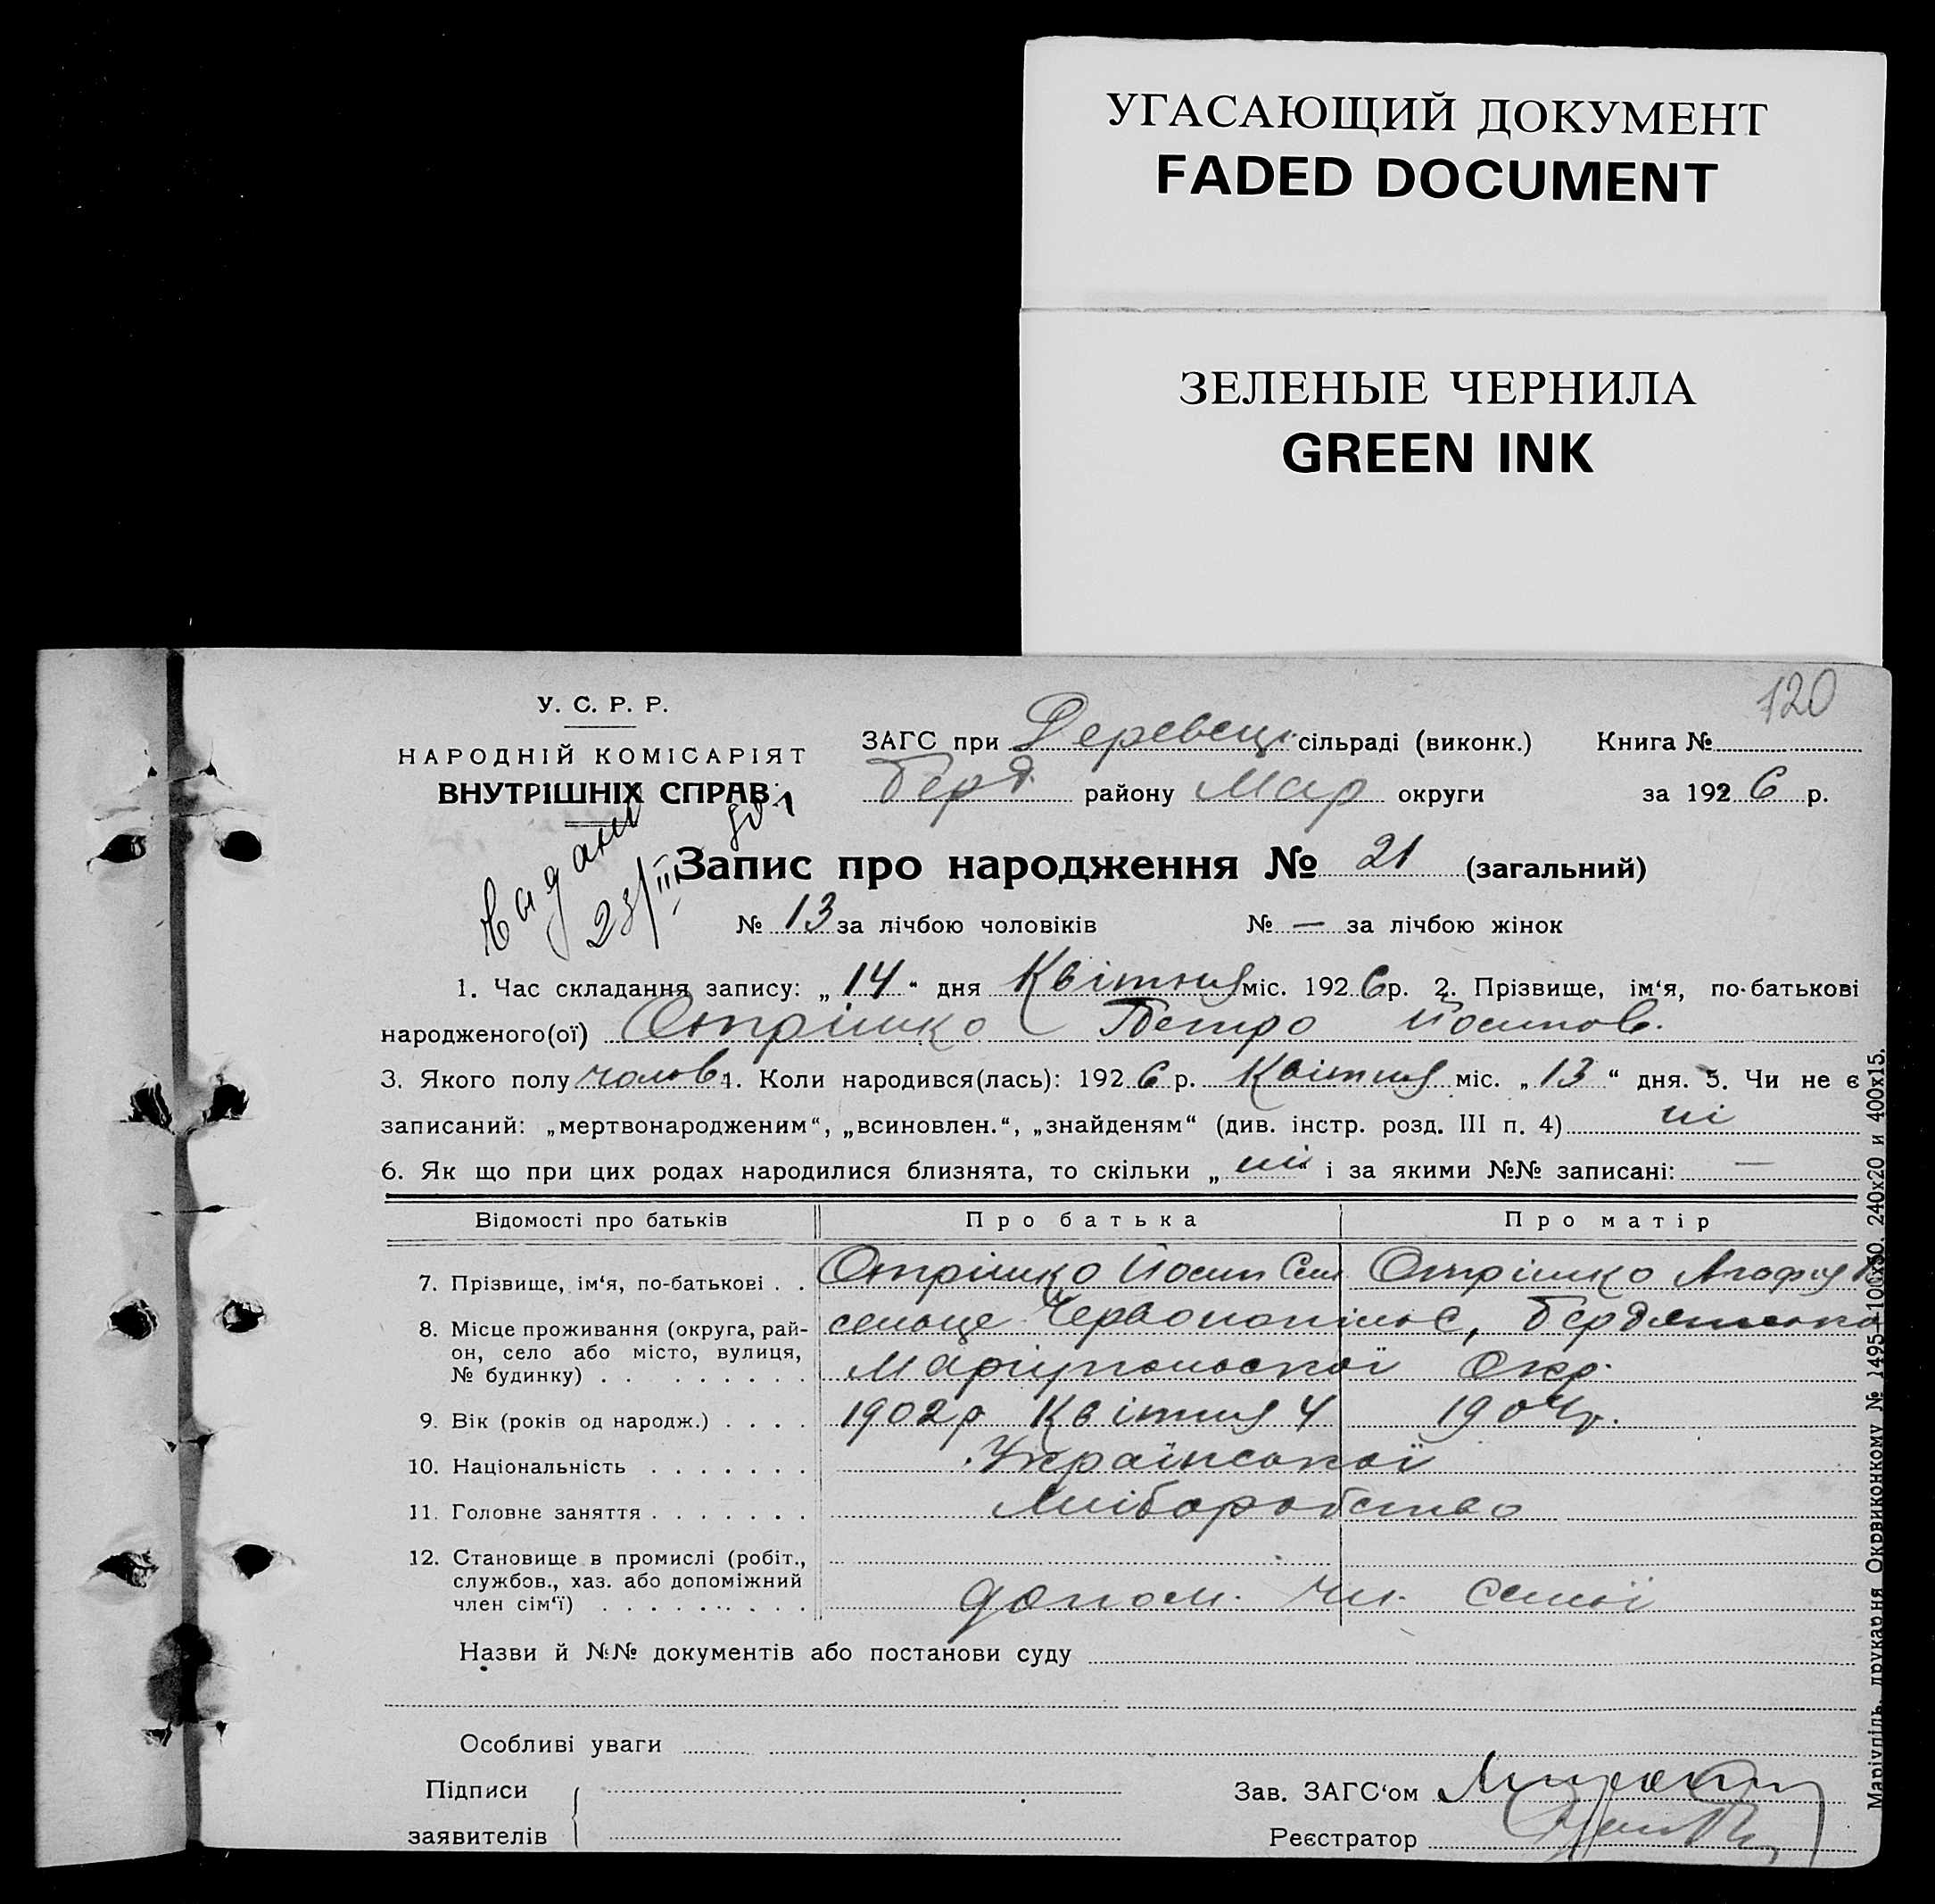 УГАСАЮЩИЙ ДОКУМЕНТ
FADED DOCUMENT
ЗЕЛЕНЫЕ ЧЕРНИЛА
GREEN INK
120
У. С. Р. Р.
НАРОДНІЙ КОМІСАРІЯТ
ВНУТРІШНІХ СПРАВ
ЗАГС при Деревецк. сільраді (виконк.) Книга №
Берд. району Мар округи за 1926 р.
Запис про народження № 21 (загальний)
№ 13 за лічбою чоловіків № — за лічбою жінок
1. Час складання запису: „14“ дня Квітня міс. 1926 р. 2. Прізвище, ім‘я, по-батькові
народженого(ої) Отрішко Петро Йосипов.
3. Якого полу чолов 4. Коли народився(лась): 1926 р. Квітня міс. „13“ дня. 5. Чи не є
записаний: „мертвонародженим“, „всиновлен.“, „знайденям“ (див. інстр. розд. III п. 4) ні
6. Як що при цих родах народилися близнята, то скільки „ні“ і за якими №№ записані: —
Відомості про батьків Про батька Про матір
7. Прізвище, ім‘я, по-батькові . . Отрішко Йосип Сем Отрішко Агафія
8. Місце проживання (округа, рай-
он, село або місто, вулиця,
№ будинку) . . . . . . . .
селище Червонопілля,
Маріупольської Окр.
9. Вік (років од народж.) . . . . 1902р Квітня 4 1904р.
10. Національність . . . . . . . Української
11. Головне заняття . . . . . . . Хліборобство
12. Становище в промислі (робіт.,
службов., хаз. або допоміжний
член сім‘ї) . . . . . . . . .
допом. чл. семьї
Назви й №№ документів або постанови суду
Особливі уваги
Підписи
заявителів
Зав. ЗАГС‘ом
Реєстратор
Маріупіль, друкарня Окрвиконкому № 1495—100х50, 240х20 и 400х15.